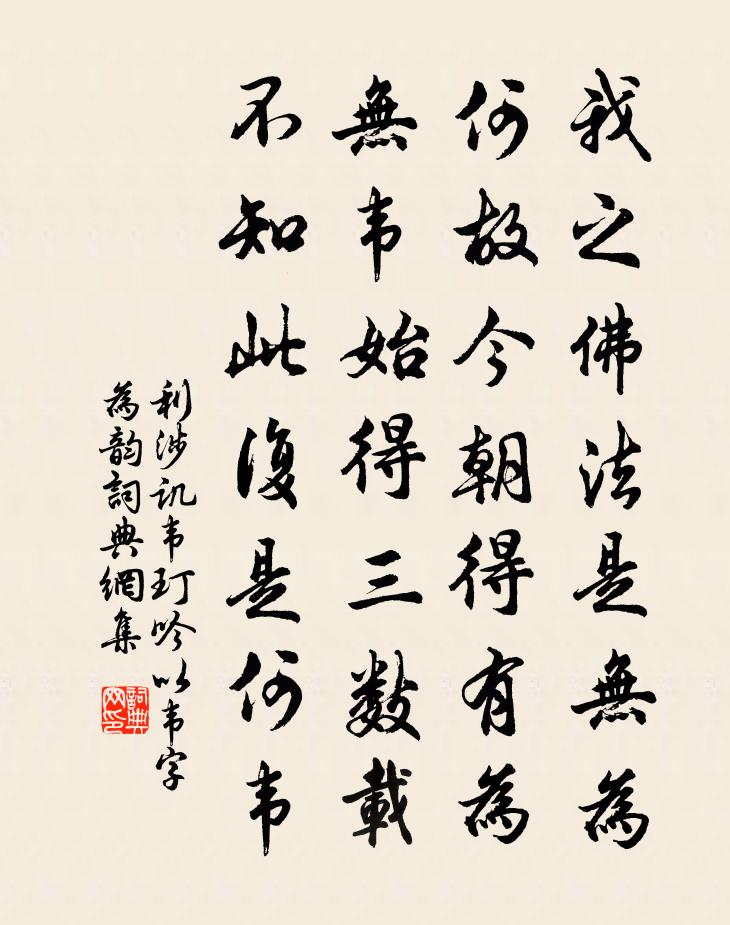 我之佛法是無為
何故今朝得有為
無韦始得三数載
不知此復是何韦
利涉讥韦玎吟以韦字
為韵詞典網集
詞典网印